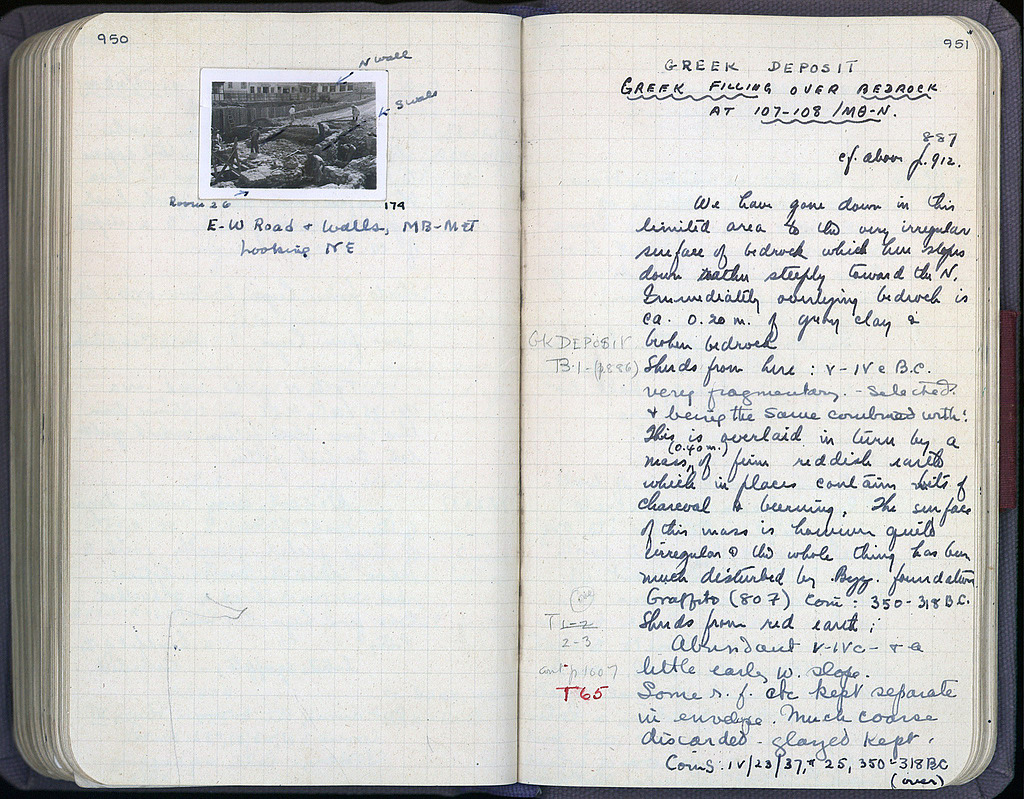 950
N wall
S wall
Room 26
174
E-W Road & Walls, MB-MΠ
Looking NE
951
GREEK DEPOSIT
GREEK FILLING OVER BEDROCK
AT 107-108 / MΘ-N.
887
cf. above p. 912.
We have gone down in this
limited area to the very irregular
surface of bedrock which here slopes
down rather steeply toward the N.
Immediately overlying bedrock is
ca. 0.20 m. of gray clay &
broken bedrock
GK DEPOSIT
B.1-(p.886) Sherds from here : V-IV c B.C.
very fragmentary. - Selected.
& being the same combined with:
This is overlaid in turn by a
(0.40 m.)
mass of firm reddish earth
which in places contains bits of
charcoal & burning. The surface
of this mass is however quite
irregular & the whole thing has been
much disturbed by Byz. foundation
Graffito (807) Coin: 350-318 B.C.
T 1-2 Sherds from red earth :
2-3
Abundant V-IVc - & a
cont p 1607 little early W. slope.
T65 Some r. f. etc kept separate
in envelope. Much coarse
discarded - glazed kept.
Coins: IV/23/37, # 25, 350-318 BC
(over)